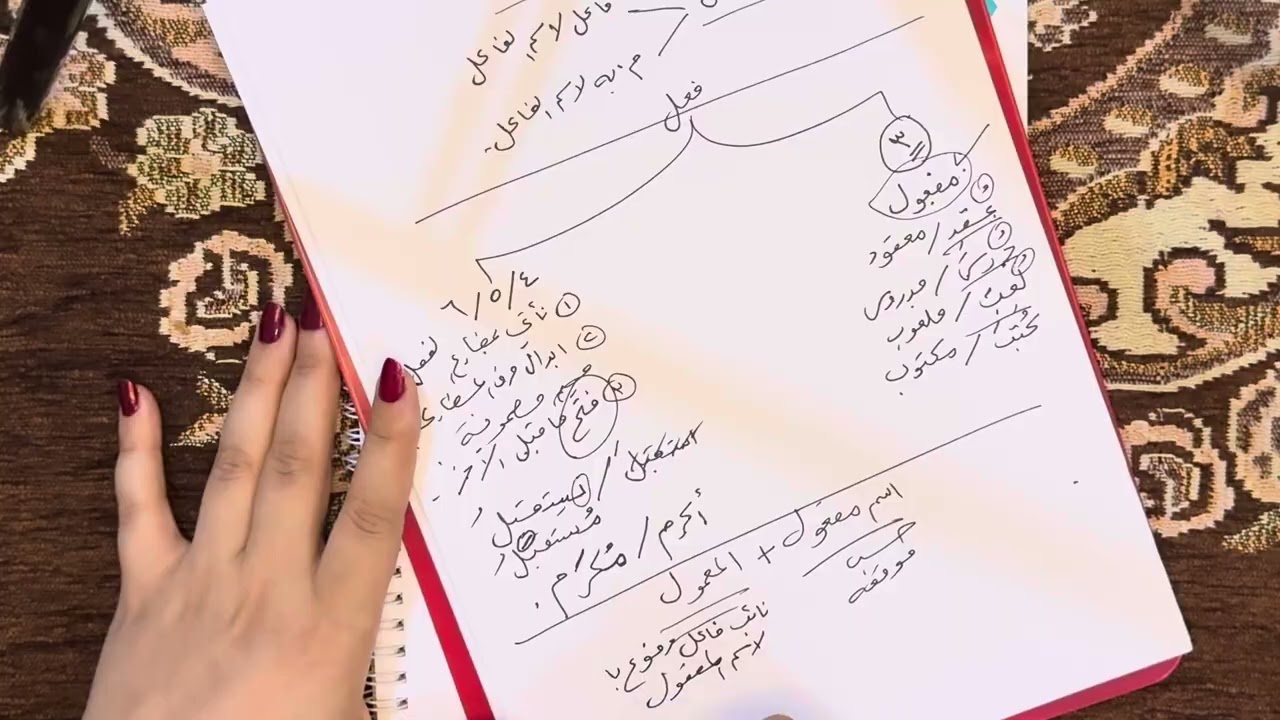 فاعل لاسم الفاعل
م. به لاسم الفاعل.
فعل
٣
مفعول
عقد / معقود
درس / مدروس
لعب / ملعوب
كُتب / مكتوب
٤ / ٥ / ٦
① نأتي بمضارع الفعل
② ابدال حرف المضارعة
ميم مضمومة
③ فتح ما قبل الآخر.
استقبل / يستقبل
مُستقبَل
أكرم / مُكرَم.
اسم مفعول + المعمول
حسب
موقعه
نائب فاعل مرفوع
لاسم المفعول